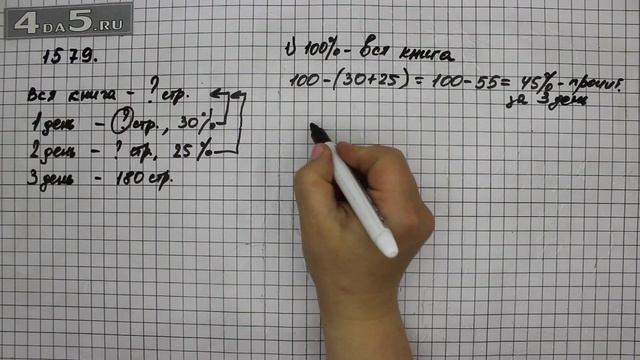 4DA5.RU
1579.
Вся книга - ? стр.
1 день - ? стр., 30%
2 день - ? стр, 25%
3 день - 180 стр.
1) 100% - вся книга
100 - (30+25) = 100 - 55 = 45% - прочит.
за 3 день